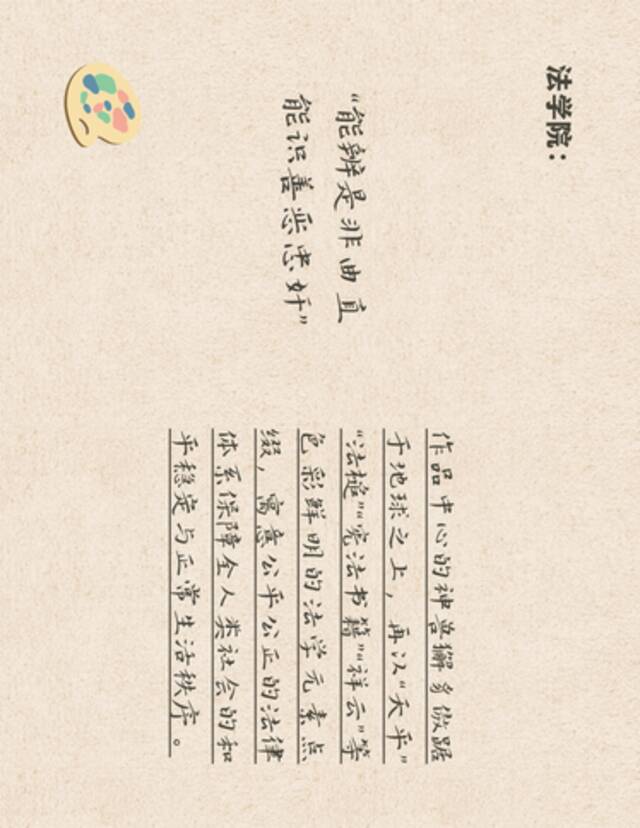 法学院：
“能辨是非曲直
能识善恶忠奸”
作品中心的神兽獬豸傲踞
于地球之上，再以“天平”
“法槌”“宪法书籍”“祥云”等
色彩鲜明的法学元素点
缀，寓意公平公正的法律
体系保障全人类社会的和
平稳定与正常生活秩序。